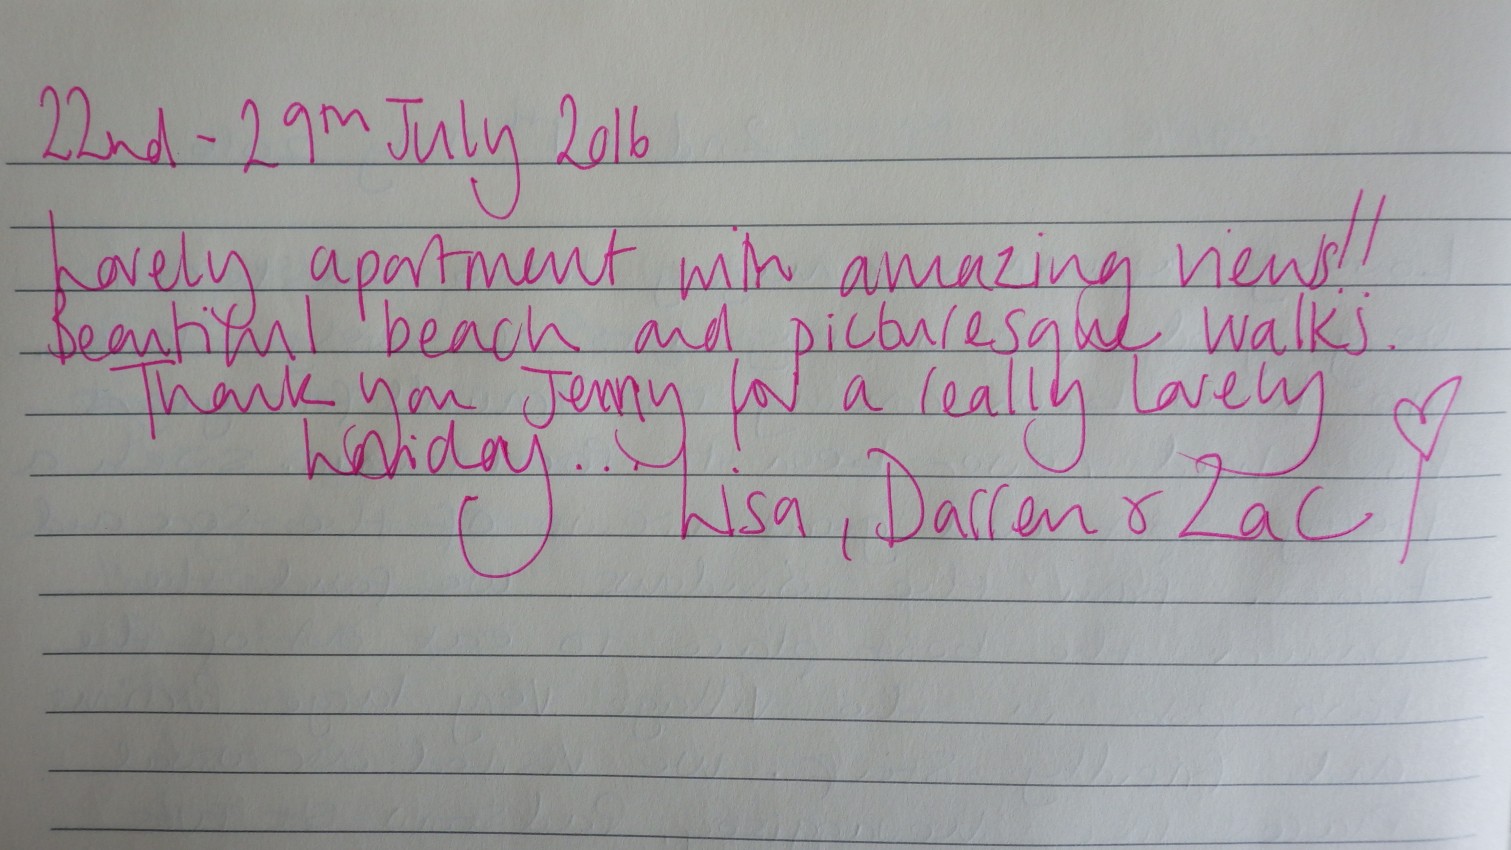 22nd - 29th July 2016
Lovely apartment with amazing views!!
Beautiful beach and picturesque walks.
Thank you Jenny for a really lovely
holiday...
Lisa, Darren & Zac